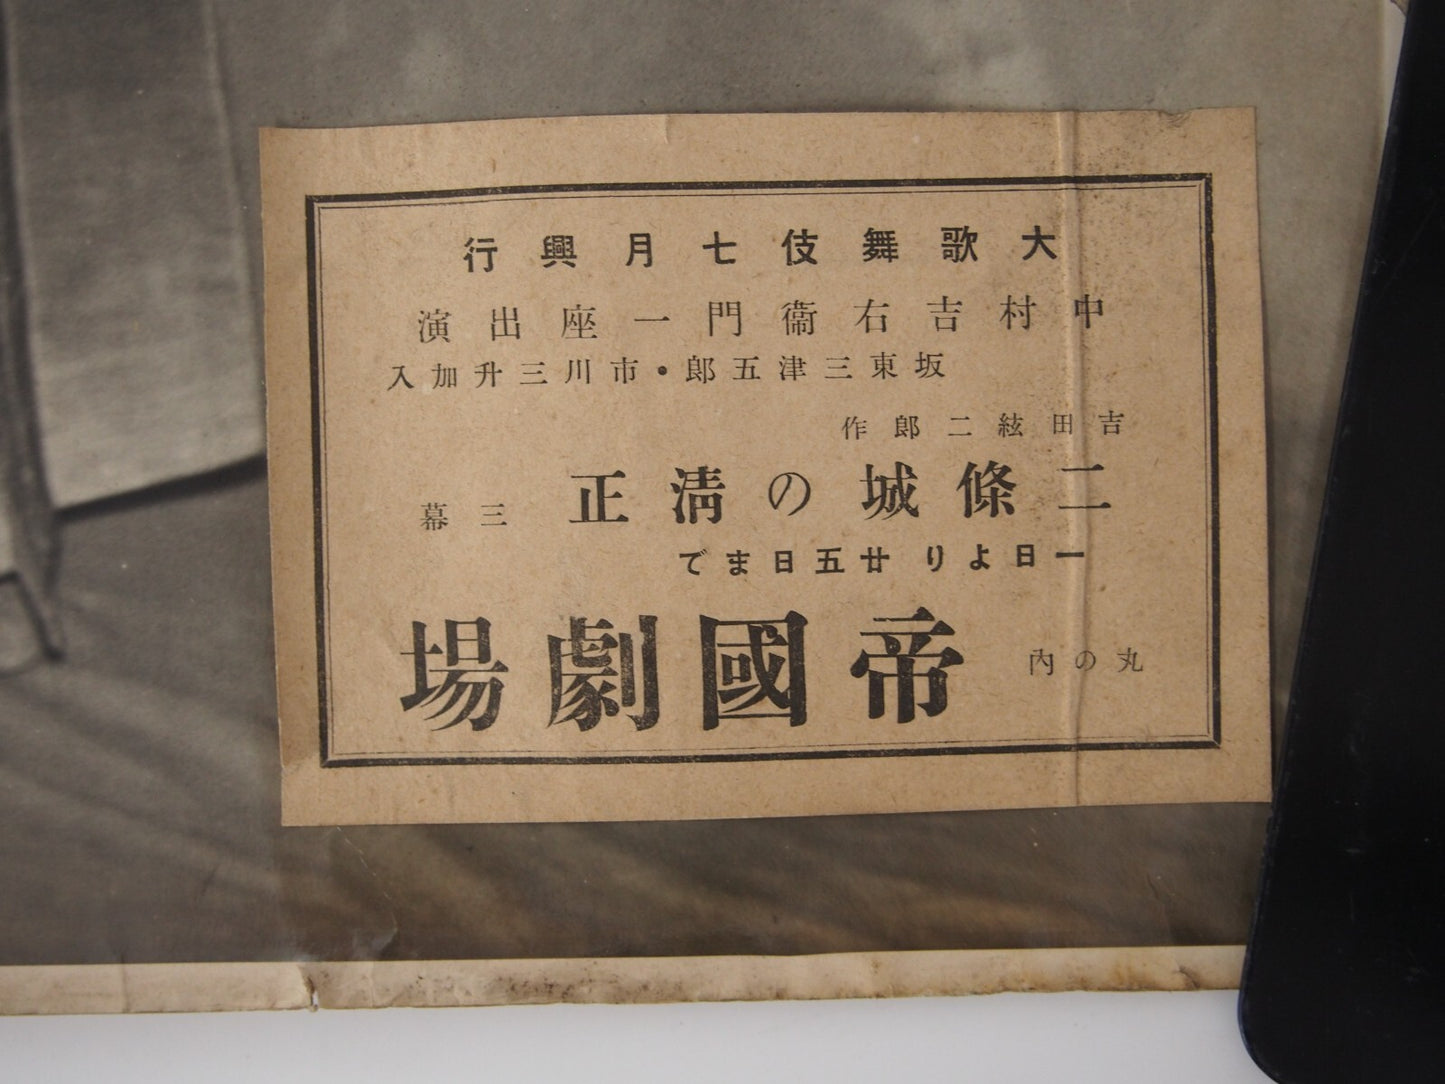 大歌舞伎七月興行
中村吉右衞門一座出演
坂東三津五郎・市川三升加入
吉田絃二郎作
二條城の淸正 三幕
一日より廿五日まで
丸の內 帝國劇場